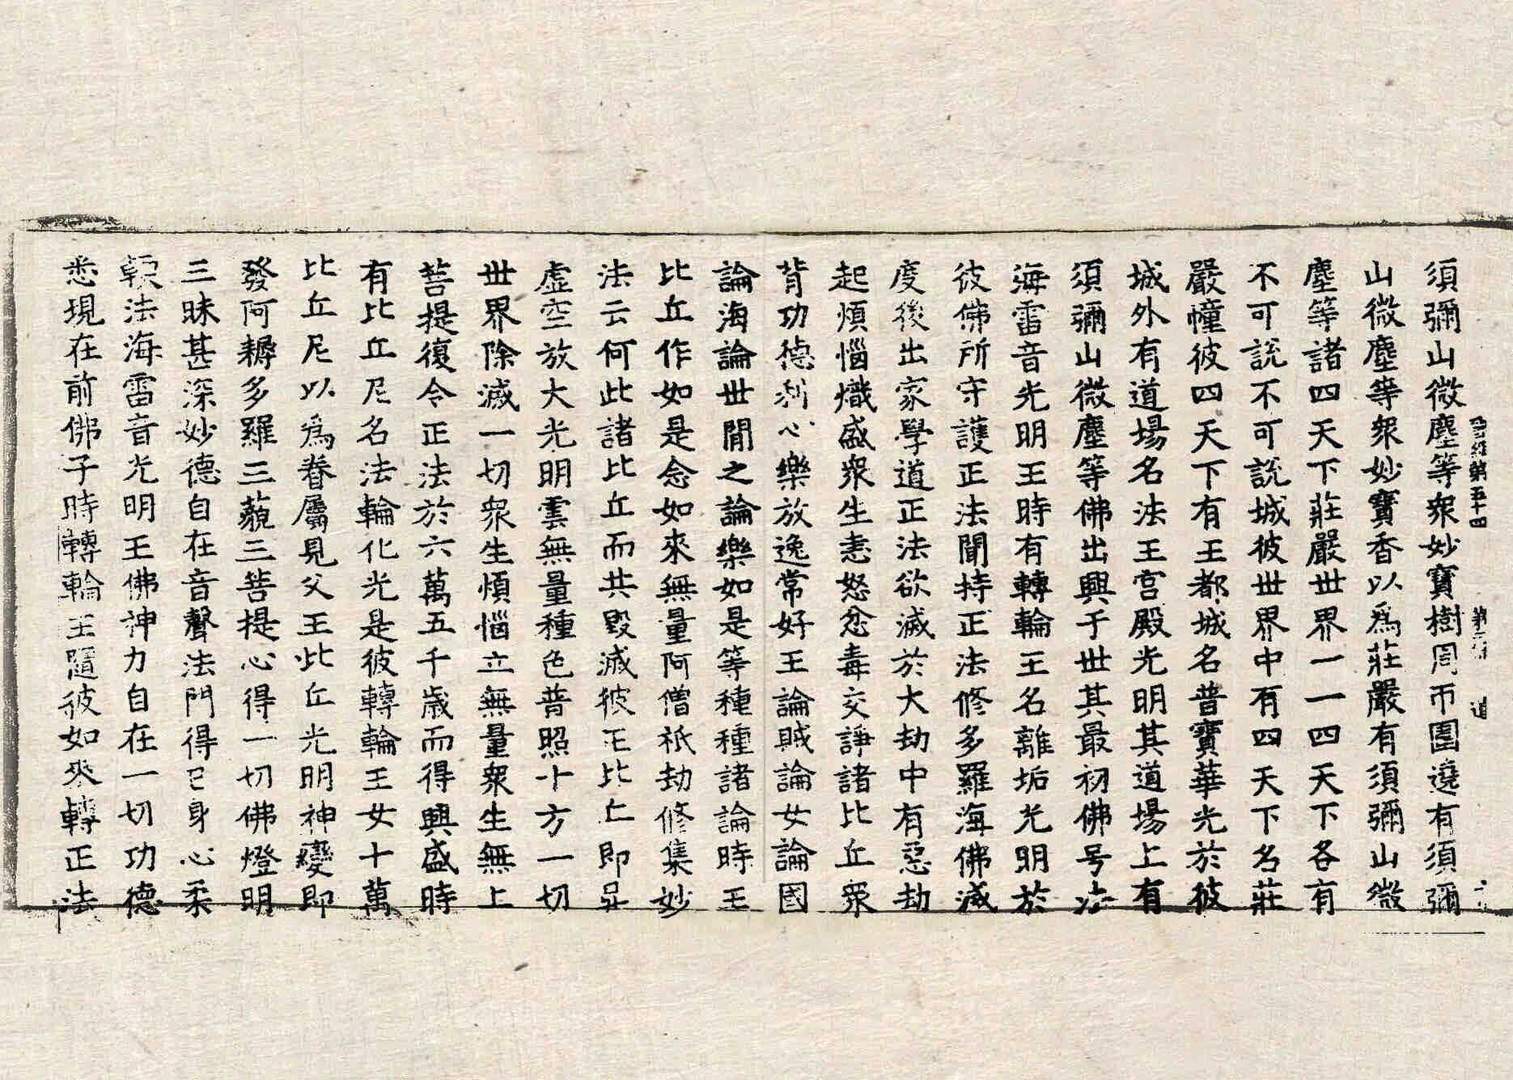 晉經第五十四 道
須彌山微塵等衆妙寶樹周帀圍遶有須彌
山微塵等衆妙寶香以為莊嚴有須彌山微
塵等諸四天下莊嚴世界一一四天下各有
不可說不可說城彼世界中有四天下名莊
嚴幢彼四天下有王都城名普寶華光於彼
城外有道場名法王宮殿光明其道場上有
須彌山微塵等佛出興于世其最初佛号法
海雷音光明王時有轉輪王名離垢光明於
彼佛所守護正法聞持正法修多羅海佛滅
度後出家學道正法欲滅於大劫中有惡劫
起煩惱熾盛衆生恚怒忿毒交諍諸比丘衆
背功德利心樂放逸常好王論賊論女論國
論海論世間之論樂如是等種種諸論時王
比丘作如是念如來無量阿僧祇劫修集妙
法云何此諸比丘而共毀滅彼王比丘即昇
虛空放大光明雲無量種色普照十方一切
世界除滅一切衆生煩惱立無量衆生無上
菩提復令正法於六萬五千歲而得興盛時
有比丘尼名法輪化光是彼轉輪王女十萬
比丘尼以為眷屬見父王比丘光明神變即
發阿耨多羅三藐三菩提心得一切佛燈明
三昧甚深妙德自在音聲法門得已身心柔
軟法海雷音光明王佛神力自在一切功德
悉現在前佛子時轉輪王隨彼如來轉正法